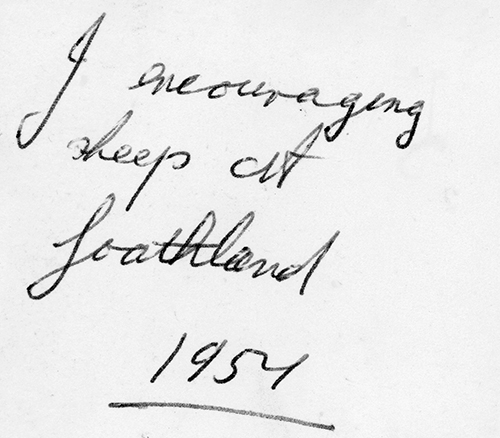 J encouraging
sheep at
Goathland
1954